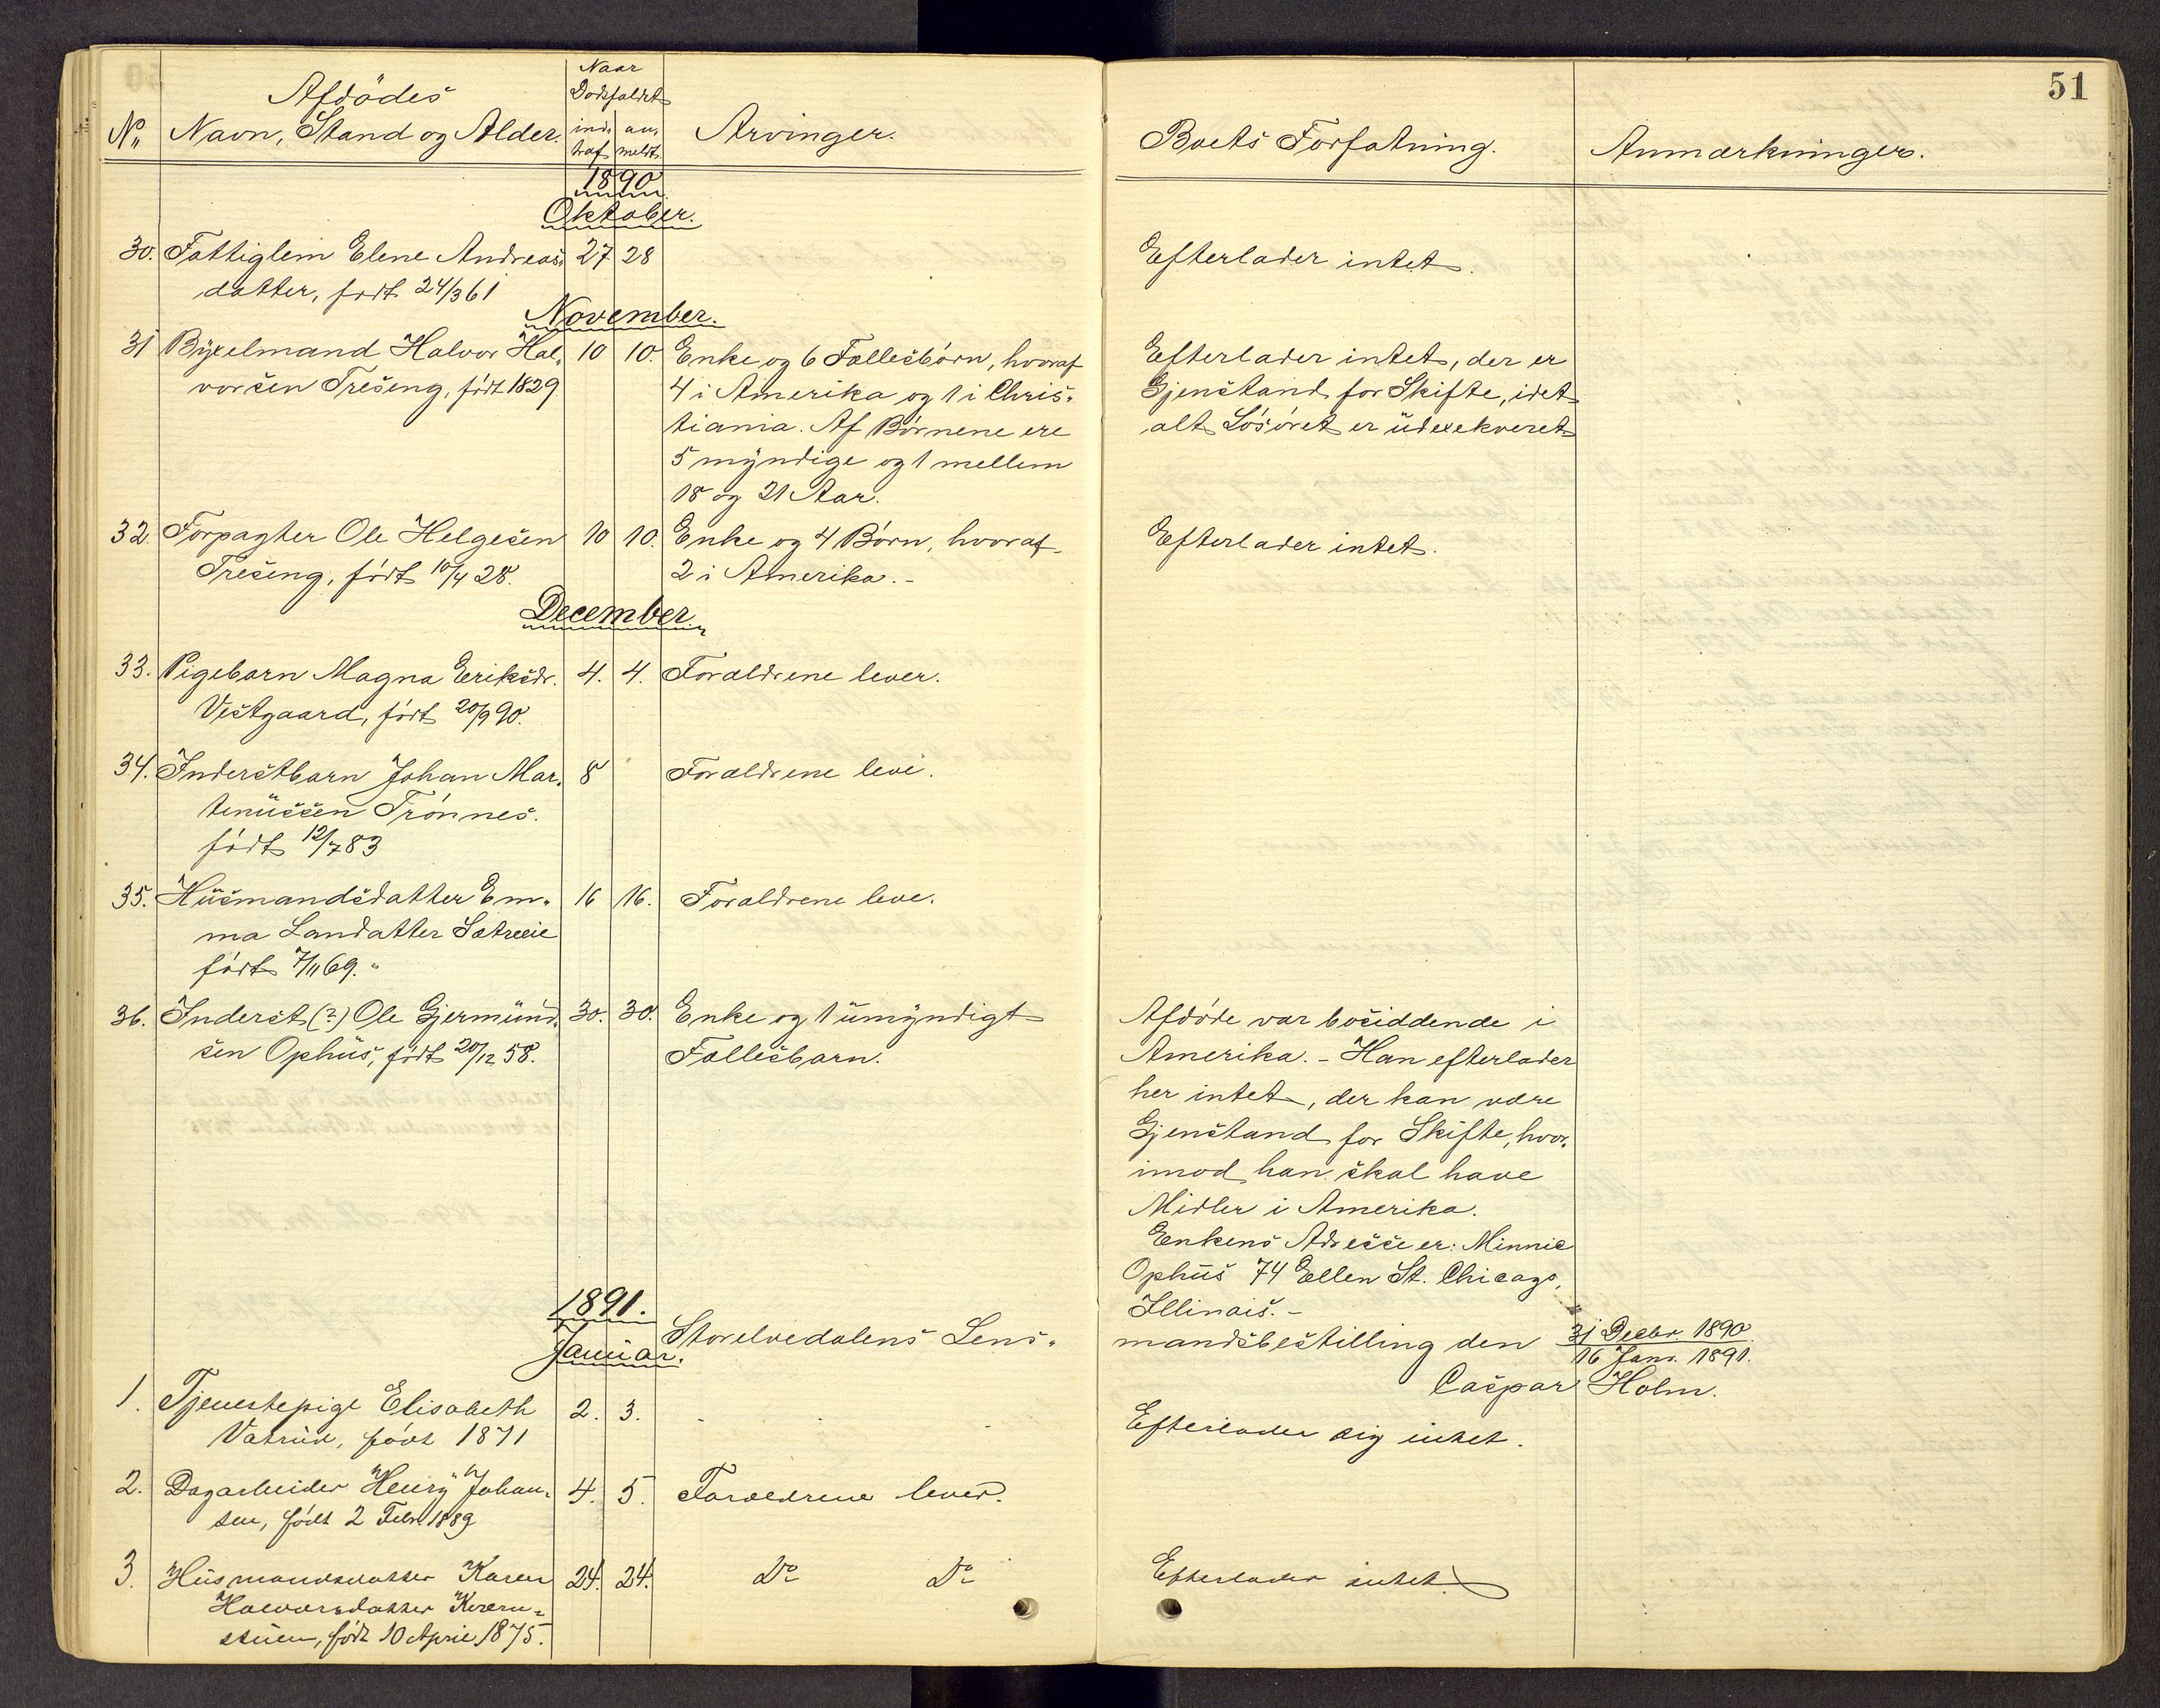 51
Afdödes
Naar
Dødsfaldet
No Navn, Stand og Alder.
ind-
traf
an-
meldt
Arvinger.
Boets Forfatning.
Anmærkninger.
1890
Oktober.
30. Fattiglem Elene Andreas- 27 28 Efterlader intet.
datter, født 24/3 61
November.
31 Byxelmand Halvor Hal- 10 10. Enke og 6 Fællesbørn, hvoraf Efterlader intet, der er
vorsen Treseng, født 1829 4 i Amerika og 1 i Chris- Gjenstand for Skifte, idet
tiania. Af Børnene ere alt Løsøret er udexekveret
5 myndige og 1 mellem
18 og 21 Aar.
32. Forpagter Ole Helgesen 10 10. Enke og 4 Børn, hvoraf Efterlader intet.
Treseng, født 10/4 28. 2 i Amerika. -
December
33. Pigebarn Magna Eriksdr. 4. 4. Forældrene lever.
Vestgaard, født 20/9 90.
34. Inderstbarn Johan Mar- 8 Forældrene leve.
tenussen Trønnes.
født 12/7 83
35. Husmandsdatter Em- 16 16. Forældrene leve.
ma Larsdatter Sætreeie
født 7/11 69.
36. Inderst (?) Ole Gjermund- 30. 30. Enke og 1 umyndigt Afdøde var bosiddende i
sen Ophus, født 20/12 58. Fællesbarn. Amerika. - Han efterlader
her intet, der kan være
Gjenstand for Skifte, hvor-
imod han skal have
Midler i Amerika.
Enkens Adresse er: Minnie
Ophus 74 Ellen St. Chicago,
Illinais. -
1891.
Januar. Storelvedalens Lens- mandsbestilling den 31 Decbr. 1890
16 Janr. 1891.
Caspar Holm.
1. Tjenestepige Elisabeth 2. 3. Efterlader sig intet.
Vatrud, født 1871
2. Dagarbeider Henry Johan- 4. 5. Forældrene lever.
sen, født 2 Febr. 1889
3. Husmandsdatter Karen 24. 24. Do Do Efterlader intet.
Halvorsdatter
stuen, født 10 April 1875.